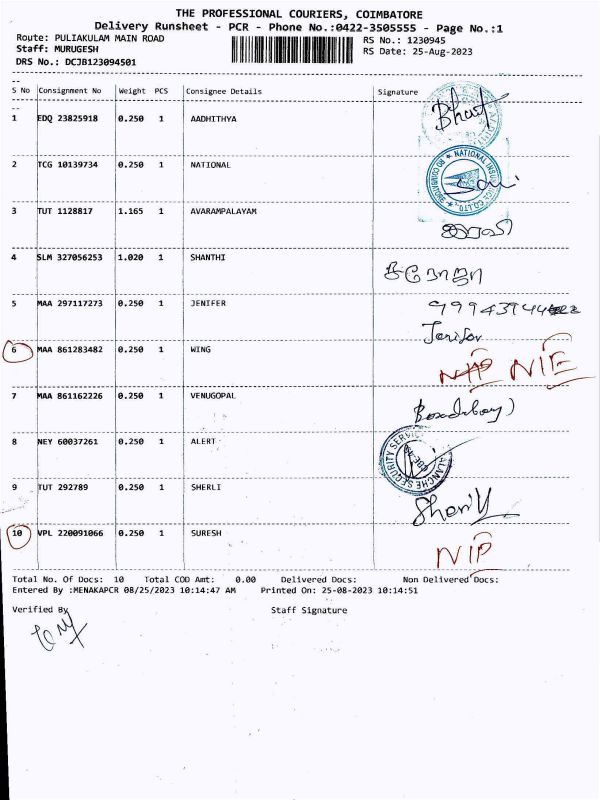 THE PROFESSIONAL COURIERS, COIMBATORE
Delivery Runsheet - PCR - Phone No.:0422-3505555 - Page No.:1
Route: PULIAKULAM MAIN ROAD RS No.: 1230945
Staff: MURUGESH RS Date: 25-Aug-2023
DRS No.: DCJB123094501
S No Consignment No Weight PCS Consignee Details Signature
1 EDQ 23825918 0.250 1 AADHITHYA
2 TCG 10139734 0.250 1 NATIONAL NATIONAL INSURANCE CO.LTD.
3 TUT 1128817 1.165 1 AVARAMPALAYAM
4 SLM 327056253 1.020 1 SHANTHI சரோஜா
5 MAA 297117273 0.250 1 JENIFER
Jenifer
6 MAA 861283482 0.250 1 WING NIP NIE
7 MAA 861162226 0.250 1 VENUGOPAL
8 NEY 60037261 0.250 1 ALERT SECURITY SERVICE
9 TUT 292789 0.250 1 SHERLI
10 VPL 220091066 0.250 1 SURESH NIP
Total No. Of Docs: 10 Total COD Amt: 0.00 Delivered Docs: Non Delivered Docs:
Entered By :MENAKAPCR 08/25/2023 10:14:47 AM Printed On: 25-08-2023 10:14:51
Verified By Staff Signature